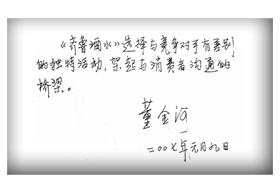 《齐鲁酒水》选择与竞争对手有差别
的独特活动，架起与消费者沟通的
桥梁。
董金河
二〇〇七年元月九日